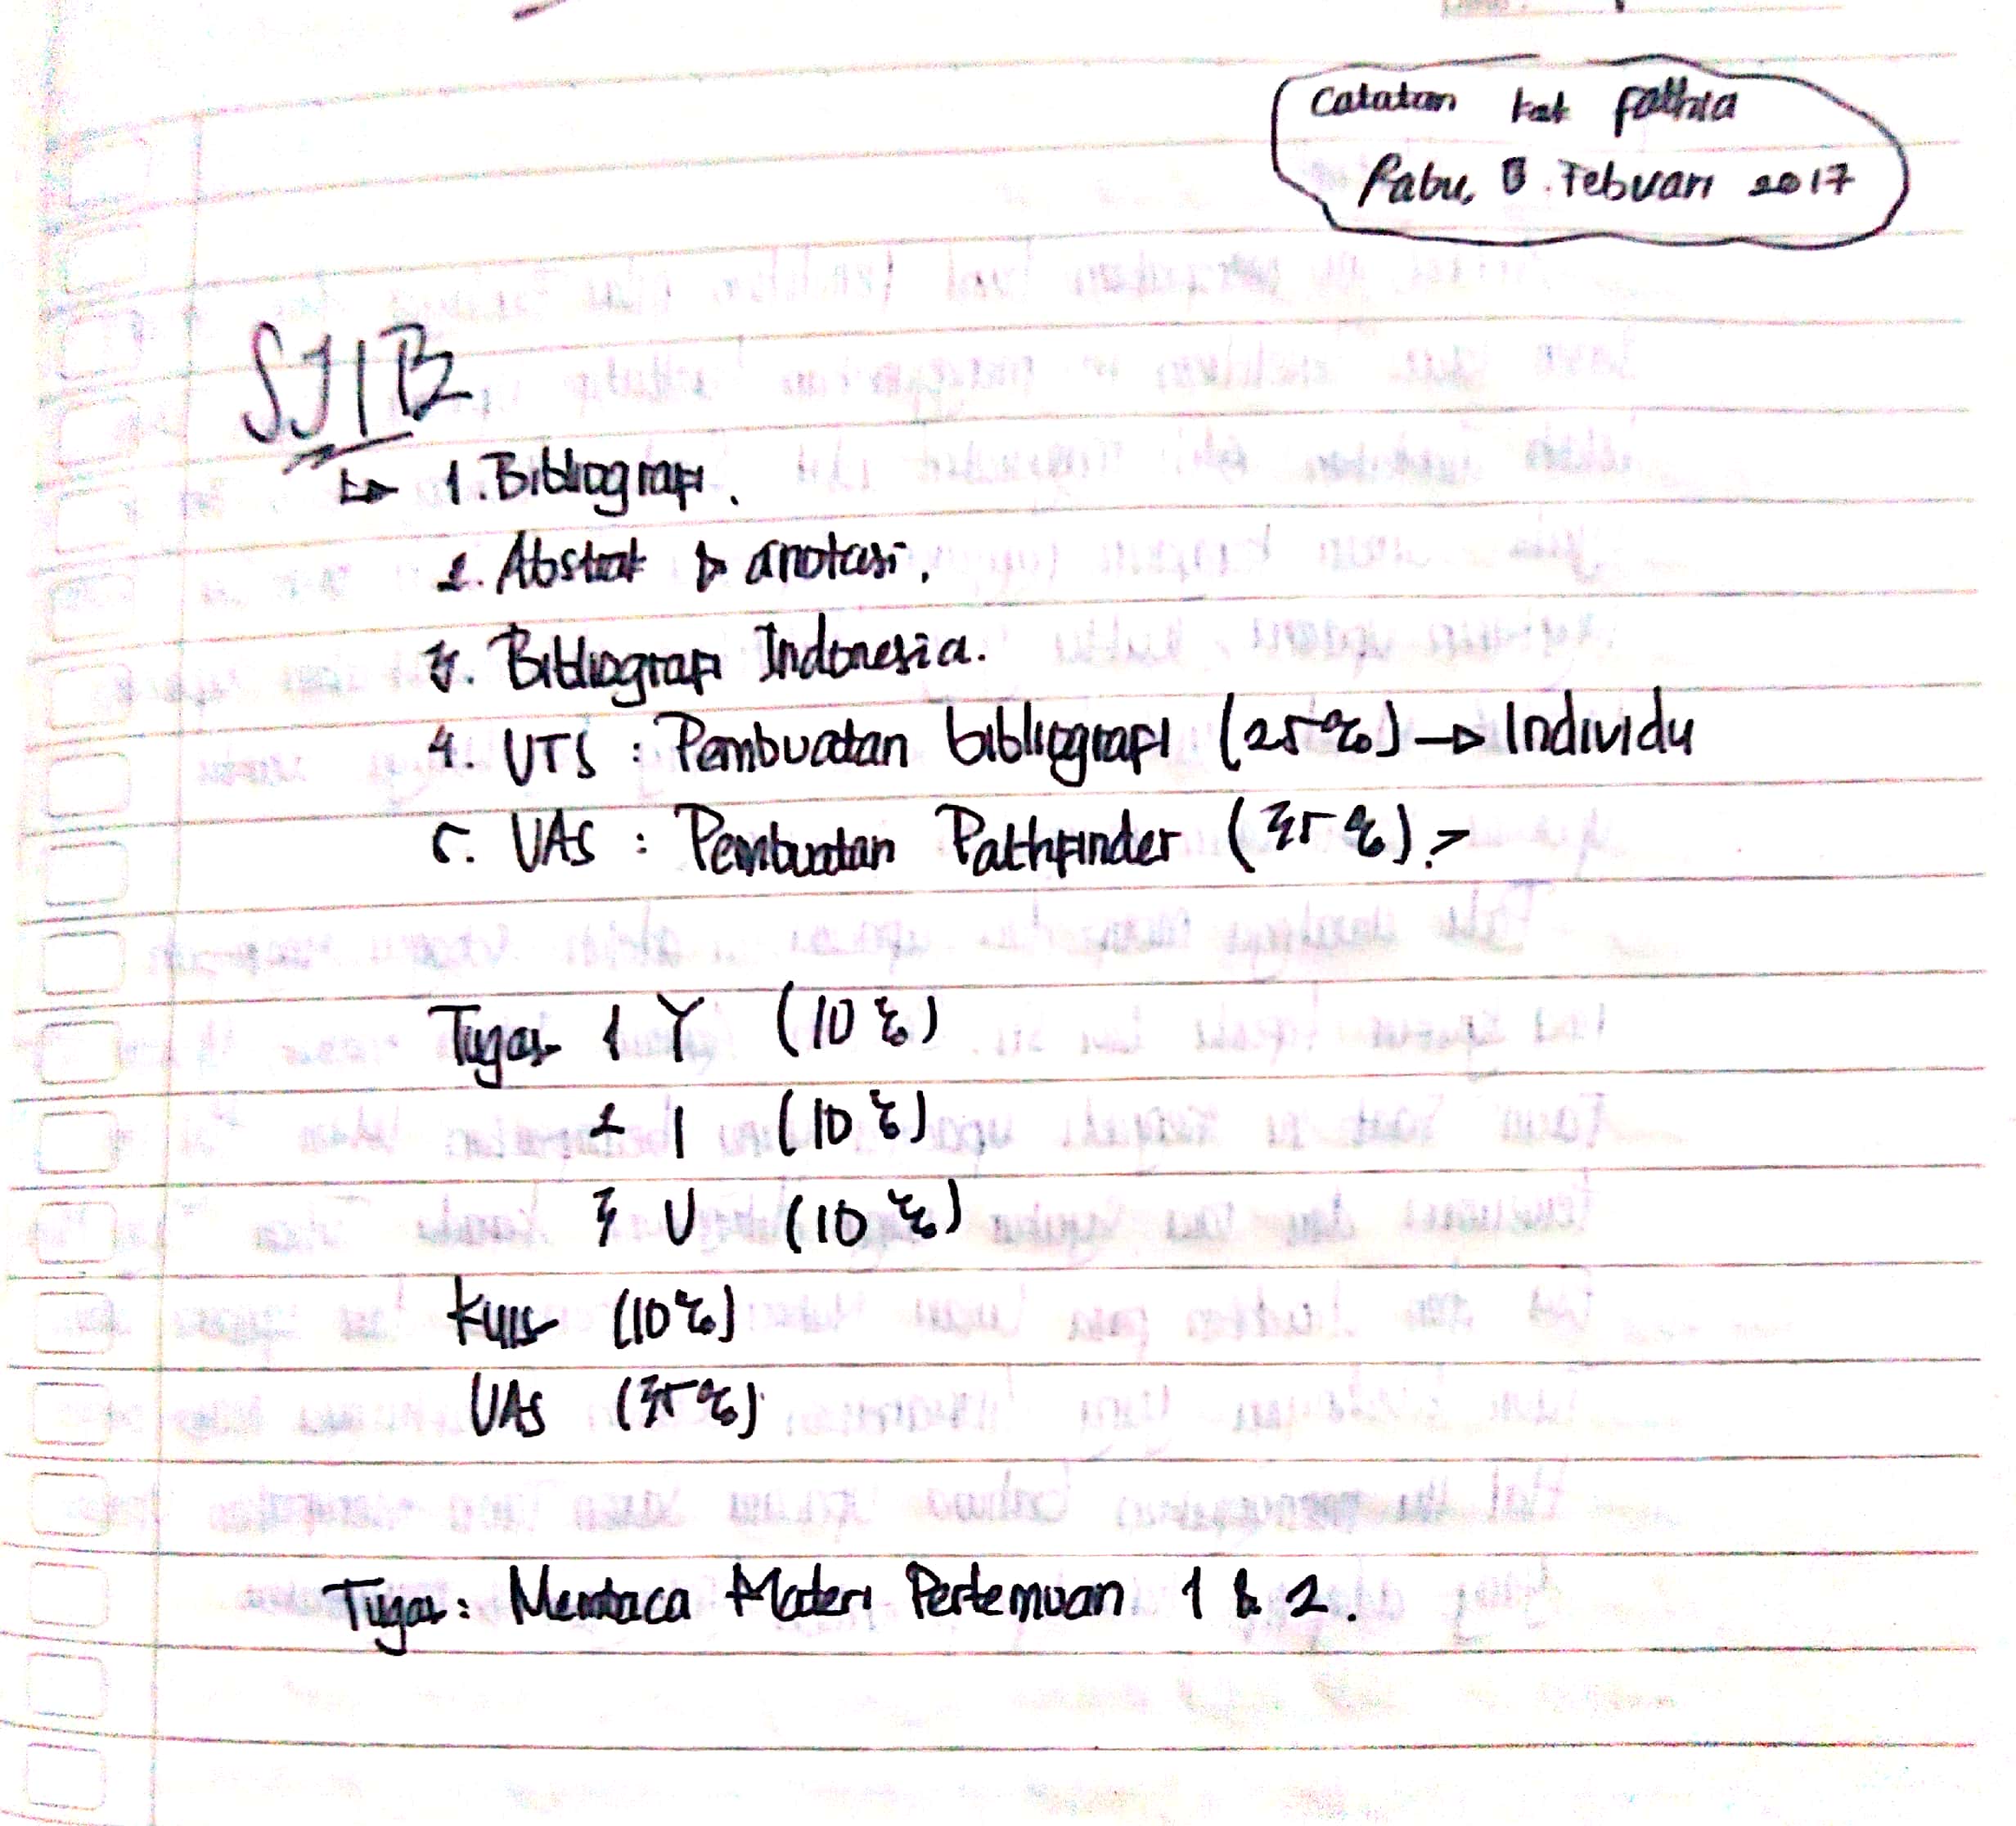 Catatan kak fathia
Rabu, 8 Febuari 2017
SJIB
1. Bibliografi.
2. Abstrak & anotasi.
3. Bibliografi Indonesia.
4. UTS : Pembuatan bibliografi (25%) → Individu
5. UAS : Pembuatan Pathfinder (35%).
Tugas 1 Y (10%)
2 I (10%)
3 U (10%)
Kuis (10%)
UAS (35%)
Tugas : Membaca Materi Pertemuan 1 & 2.